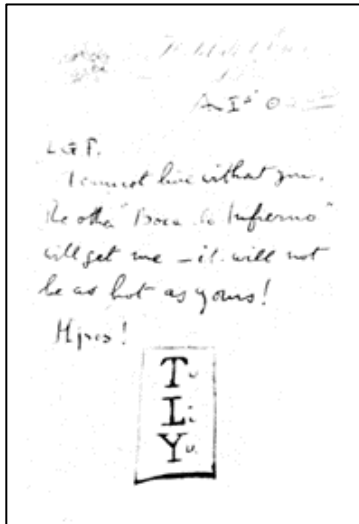 L.G.P.
I cannot live without you.
The other "Boca de Infierno"
will get me – it will not
be as hot as yours!
Hjsos!
Tu
Li
Yu.